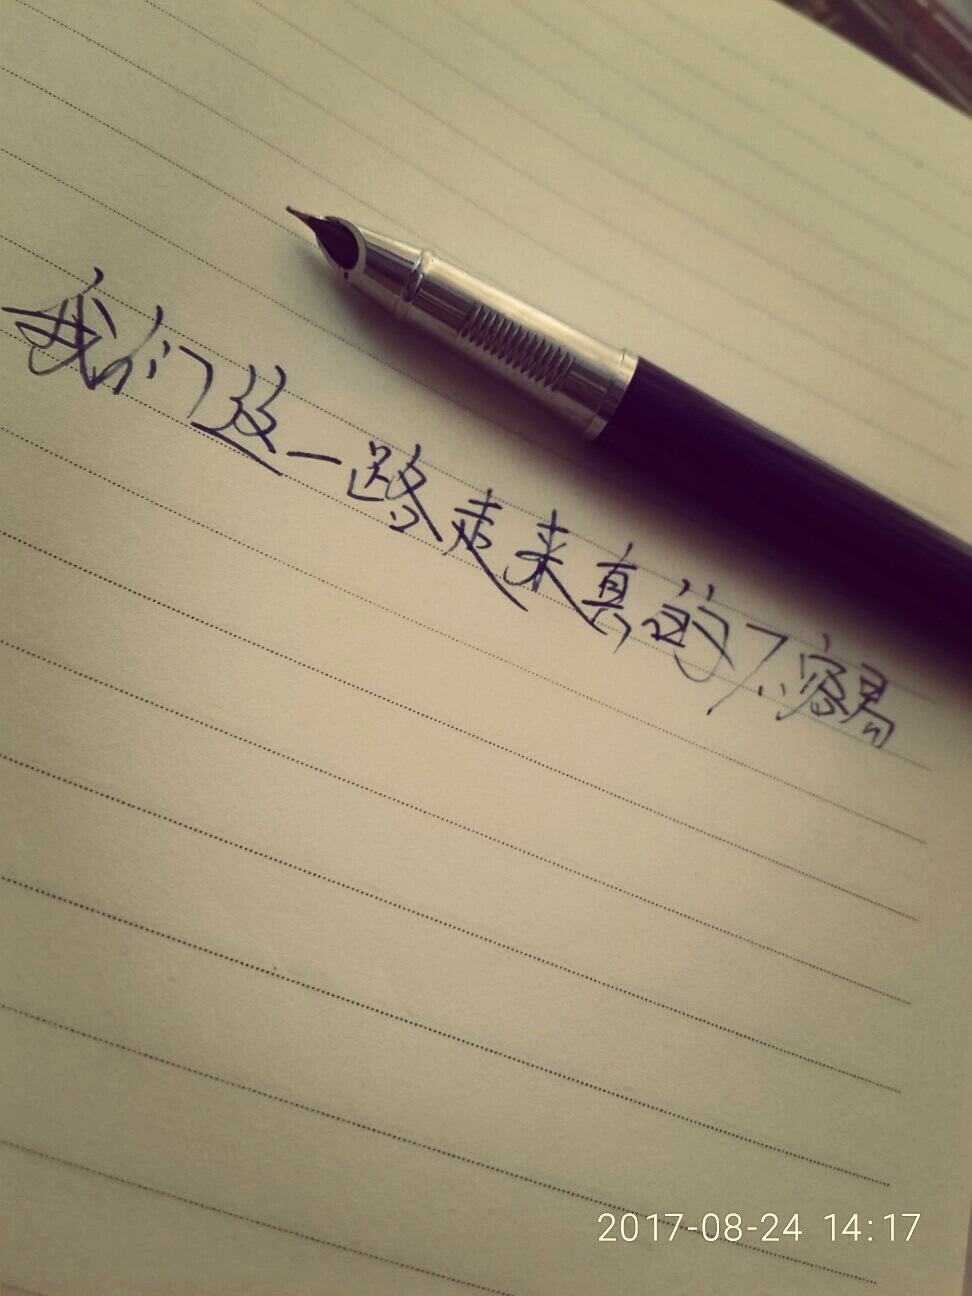 我们这一路走来真的不容易
2017-08-24 14:17